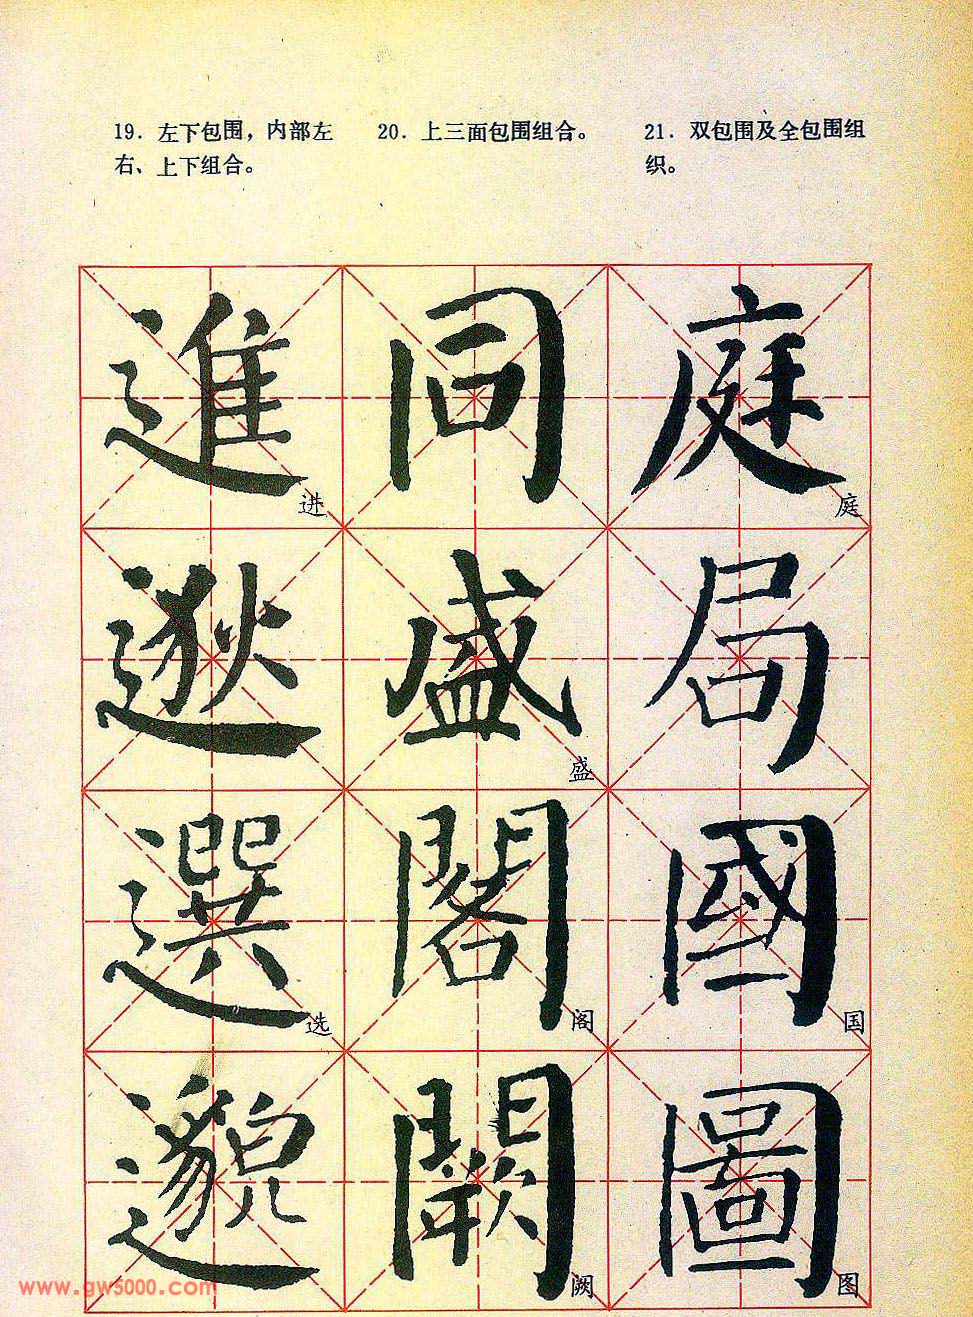 19. 左下包围，内部左
右、上下组合。
20. 上三面包围组合。
21. 双包围及全包围组
织。
進 同 庭
进 庭
逖 盛 局
盛
選 閣 國
选 阁 国
邈 闕 圖
阙 图
www.gw5000.com